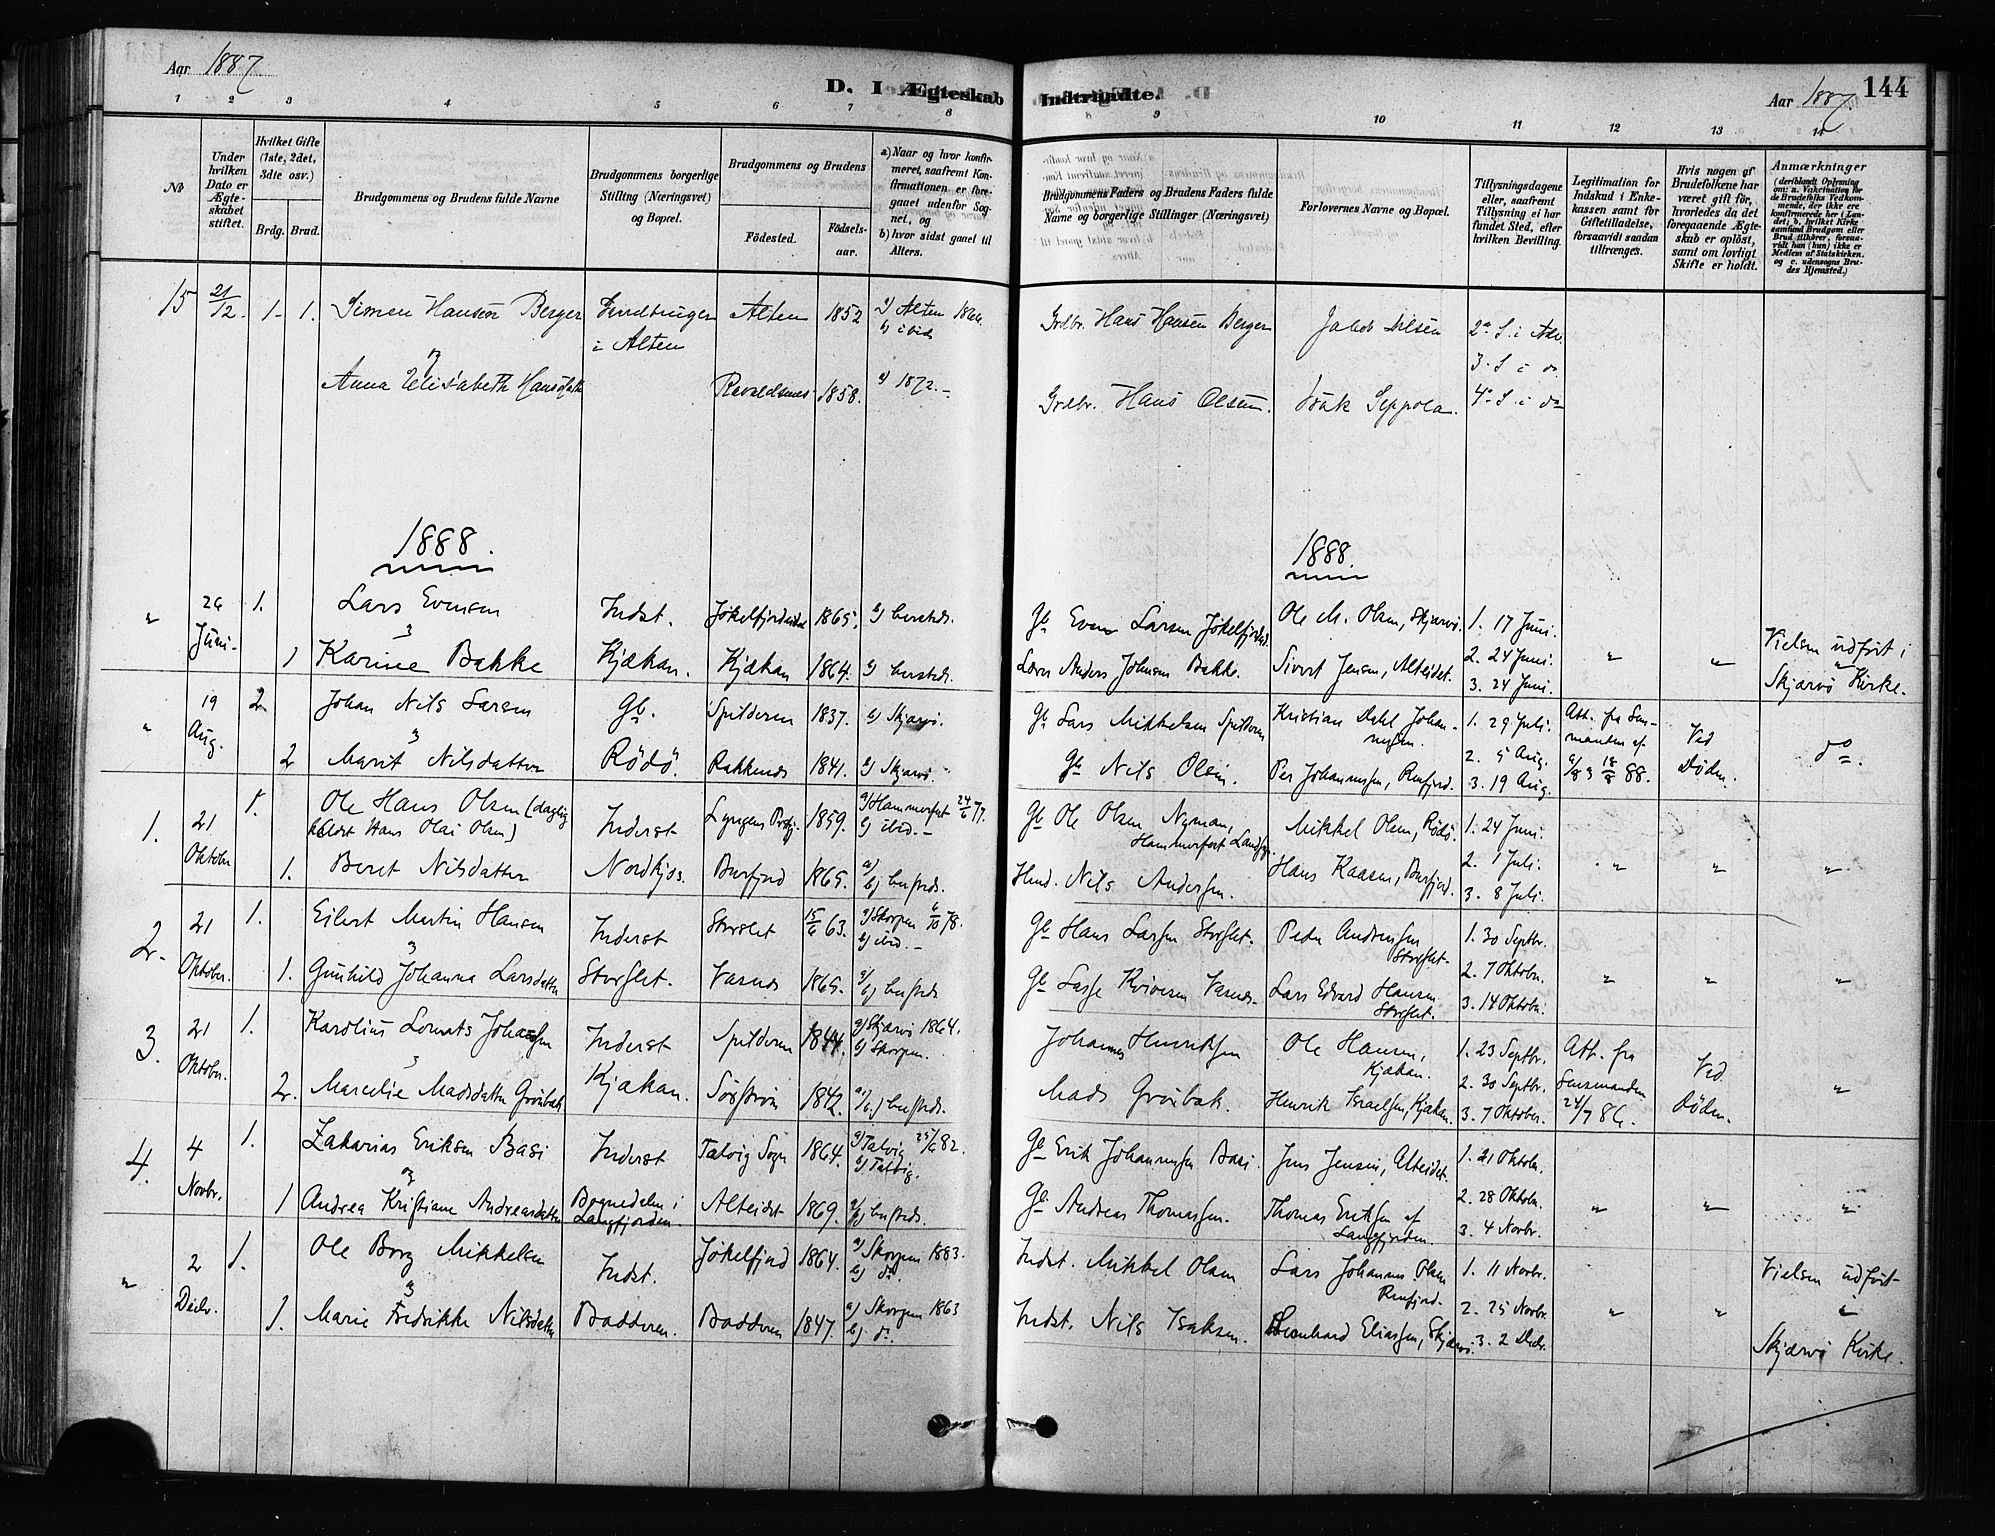 Aar 1887.
D. I Ægteskab Indtraadte.
Aar 1887.
144
1 2 3 4 5 6 7 8 9 10 11 12 13 14
No
Under hvilken Dato er Ægteskabet stiftet.
Hvilket Gifte (1ste, 2det, 3die osv.)
Brdg. Brud.
Brudgommens og Brudens fulde Navne
Brudgommens borgerlige Stilling (Næringsvei) og Bopæl.
Brudgommens og Brudens
Födested.
Födselsaar.
a) Naar og hvor konfirmeret, saafremt Konfirmationen er foregaaet udenfor Sognet, og
b) hvor sidst gaaet til Alters.
Brudgommens Faders og Brudens Faders fulde Navne og borgerlige Stillinger (Næringsvei)
Forlovernes Navne og Bopæl.
Tillysningsdagene eller, saafremt Tillysning ei har fundet Sted, efter hvilken Bevilling.
Legitimation for Indskud i Enkekassen samt for Giftetilladelse, forsaavidt saadan tiltrænges.
Hvis nogen af Brudefolkene har været gift før, hvorledes da det foregaaende Ægteskab er oplöst, samt om lovligt Skifte er holdt.
Anmærkninger
(deriblandt Oplysning om: a. Vakcination for de Brudefolks Vedkommende, der ikke ere konfirmerede her i Landet; b. hvilket Kirkesamfund Brudgom eller Brud tilhörer, forsaavidt han (hun) ikke er Medlem af Statskirken, og c. udensogns Brudes Hjemsted.)
15 21/12. 1- 1. Simon Hansen Berger
i Alten Alten 1852 a) Alten 1866.
b) ibid
Grdbr. Hans Hansen Berger Jakob Nilsen 2den S. i Adv.
3- S i do
og
Anna Elisabeth Hansdatter 1858. a) 1872.-
Grdbr. Hans Olsen. Isak Seppola. 4de S. i do
1888. 1888.
" 26 Juni. 1. Lars Evensen Indst. Jøkelfjordeidet 1865. b) herstds.
Gb Even Larsen Jøkelfjordeid. Ole M. Olsen, Skjærvø. 1. 17 Juni.
1 Karine Bakke Kjækan. Kjækan 1864. b) herstds.
Lærer Anders Johnsen Bakke. Sivert Jensen, Alteidet. 2. 24 Juni.
3. 24 Juni. " " Vielsen udført i Skjærvø Kirke.
" 19 Aug. 2. Johan Nils Larsen Gb. Spilderen 1837. b) Skjærvø.
Gb Lars Mikkelsen Spilderen Kristian Dahl Johannesen. 1. 29 Juli.
2 Marit Nilsdatter Rödö. 1841. b) Skjærvø.
Gb Nils Olsen. Per Johannessen, Renfjord. 2. 5 Aug.
3. 19 Aug. Att. fra Lensmanden af 88. Ved Døden. do.
1. 21 Oktober 1. Ole Hans Olsen (daglig kaldet Hans Olai Olsen) Inderst 1859. a) Hammerfest 24/6 77.
b) ibid.-
Gb Ole Olsen Nyman, Hammerfest Landsogn. Mikkel Olsen, Rödö. 1. 24 Juni.
1. Beret Nilsdatter Burfjord 1865. a)
b) herstds.
Nils Andersen. Hans Kaasen, Burfjord. 2. 1 Juli.
3. 8 Juli. " " "
2. 21 Oktober. 1. Eilert Martin Hansen Inderst Storslet 15/6 63. a) Skorpen 6/10 78.
b) ibid.-
Gb Hans Larsen Storslet. Peder Andreassen Storslet. 1. 30 Septbr.
1. Gunhild Johanna Larsdatter Storslet. Vasnes 1865. a)
b) herstds
Gb Vasnes. Lars Edvard Hansen Storslet. 2. 7 Oktobr.
3. 14 Oktobr. " " "
3. 21 Oktober. 1. Karolius Johansen Inderst Spilderen 1844. a) Skjærvø 1864.
b) Skorpen.
Johannes Henriksen Ole Hansen, Kjækan. 1. 23 Septbr.
2. Marcelie Madsdatter Grönbek Kjækan. 1842. a)
b) herstds.
Mads Grönbak. Henrik Israelsen, Kjækan. 2. 30 Septbr.
3. 7 Oktober. Att. fra Lensmanden 24/7 86. Ved Døden. "
4. 4 Novbr. 1. Zakarias Eriksen Basi Inderst Talvig Sogn 1864. a) Talvig 25/6 82.
b) Talvig.
Gb Erik Johannesen Basi. Jens Jensen, Alteidet. 1. 21 Oktobr.
og
1 Andrea Kristiane Andreasdatter Bognedalen i Langfjorden. Alteidet 1869. a)
b) herstds.
Gb. Andreas Thomassen. Thomas Eriksen af Langfjorden. 2. 28 Oktobr.
3. 4 Novbr. " " "
" 2 Decbr. 1. Ole Borg Mikkelsen Indst. Jøkelfjord 1864. a) Skorpen 1883.
b) do.
Indst. Mikkel Olsen Lars Johannes Olsen Renfjord. 1. 11 Novbr.
1. Marie Fredrikke Nilsdatter Badderen. Badderen 1847. a) Skorpen 1863
b) do.
Indst. Nils Isaksen. Bernhard Eliassen, Skjærvø. 2. 25 Novbr.
3. 2 Decbr. " " Vielsen udført i Skjærvø Kirke.